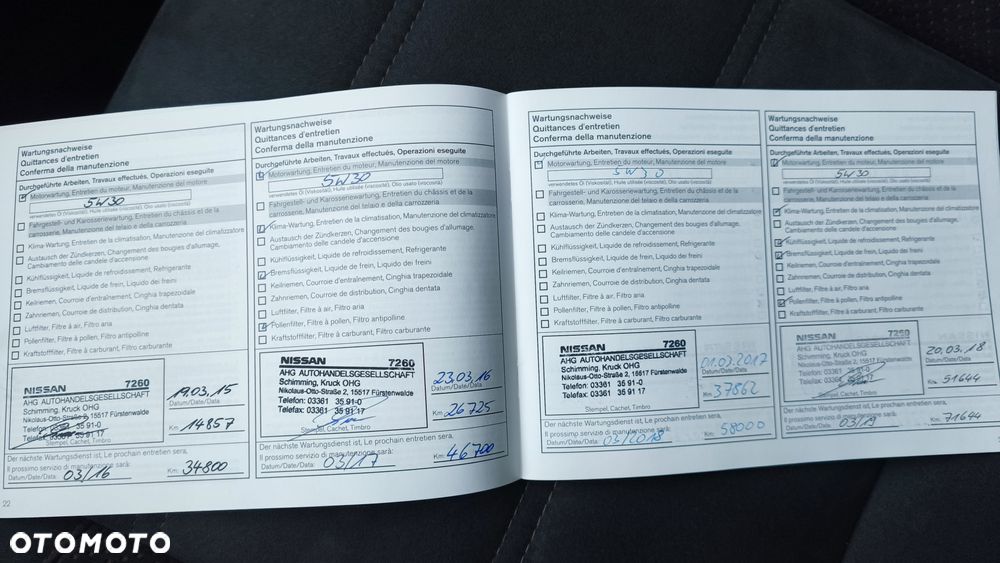 Wartungsnachweise
Quittances d'entretien
Conferma della manutenzione
Durchgeführte Arbeiten, Travaux effectués, Operazioni eseguite
Motorwartung, Entretien du moteur, Manutenzione del motore
5W30
verwendetes Öl (Viskosität), Huile utilisée (viscosité), Olio usato (viscosità)
Fahrgestell- und Karosseriewartung, Entretien du châssis et de la
carrosserie, Manutenzione del telaio e della carrozzeria
Klima-Wartung, Entretien de la climatisation, Manutenzione del climatizzatore
Austausch der Zündkerzen, Changement des bougies d'allumage,
Cambiamento delle candele d'accensione
Kühlflüssigkeit, Liquide de refroidissement, Refrigerante
Bremsflüssigkeit, Liquide de frein, Liquido dei freini
Keilriemen, Courroie d'entraînement, Cinghia trapezoidale
Zahnriemen, Courroie de distribution, Cinghia dentata
Luftfilter, Filtre à air, Filtro aria
Pollenfilter, Filtre à pollen, Filtro antipolline
Kraftstofffilter, Filtre à carburant, Filtro carburante
NISSAN 7260
AHG AUTOHANDELSGESELLSCHAFT
Schimming, Kruck OHG
Nikolaus-Otto-Straße 2, 15517 Fürstenwalde
Telefon: 03361 35 91-0
Telefax: 03361 35 91 17
Stempel, Cachet, Timbro
19.03.15
Datum/Date/Data:
Km: 14857
Der nächste Wartungsdienst ist, Le prochain entretien sera,
Il prossimo servizio di manutenzione sarà:
Datum/Date/Data: 03/16 Km: 34800
22
Wartungsnachweise
Quittances d'entretien
Conferma della manutenzione
Durchgeführte Arbeiten, Travaux effectués, Operazioni eseguite
Motorwartung, Entretien du moteur, Manutenzione del motore
5W30
verwendetes Öl (Viskosität), Huile utilisée (viscosité), Olio usato (viscosità)
Fahrgestell- und Karosseriewartung, Entretien du châssis et de la
carrosserie, Manutenzione del telaio e della carrozzeria
Klima-Wartung, Entretien de la climatisation, Manutenzione del climatizzatore
Austausch der Zündkerzen, Changement des bougies d'allumage,
Cambiamento delle candele d'accensione
Kühlflüssigkeit, Liquide de refroidissement, Refrigerante
Bremsflüssigkeit, Liquide de frein, Liquido dei freini
Keilriemen, Courroie d'entraînement, Cinghia trapezoidale
Zahnriemen, Courroie de distribution, Cinghia dentata
Luftfilter, Filtre à air, Filtro aria
Pollenfilter, Filtre à pollen, Filtro antipolline
Kraftstofffilter, Filtre à carburant, Filtro carburante
NISSAN 7260
AHG AUTOHANDELSGESELLSCHAFT
Schimming, Kruck OHG
Nikolaus-Otto-Straße 2, 15517 Fürstenwalde
Telefon: 03361 35 91-0
Telefax: 03361 35 91 17
Stempel, Cachet, Timbro
23.03.16
Datum/Date/Data:
Km: 26725
Der nächste Wartungsdienst ist, Le prochain entretien sera,
Il prossimo servizio di manutenzione sarà:
Datum/Date/Data: 03/17 Km: 46700
Wartungsnachweise
Quittances d'entretien
Conferma della manutenzione
Durchgeführte Arbeiten, Travaux effectués, Operazioni eseguite
Motorwartung, Entretien du moteur, Manutenzione del motore
5W30
verwendetes Öl (Viskosität), Huile utilisée (viscosité), Olio usato (viscosità)
Fahrgestell- und Karosseriewartung, Entretien du châssis et de la
carrosserie, Manutenzione del telaio e della carrozzeria
Klima-Wartung, Entretien de la climatisation, Manutenzione del climatizzatore
Austausch der Zündkerzen, Changement des bougies d'allumage,
Cambiamento delle candele d'accensione
Kühlflüssigkeit, Liquide de refroidissement, Refrigerante
Bremsflüssigkeit, Liquide de frein, Liquido dei freini
Keilriemen, Courroie d'entraînement, Cinghia trapezoidale
Zahnriemen, Courroie de distribution, Cinghia dentata
Luftfilter, Filtre à air, Filtro aria
Pollenfilter, Filtre à pollen, Filtro antipolline
Kraftstofffilter, Filtre à carburant, Filtro carburante
NISSAN 7260
AHG AUTOHANDELSGESELLSCHAFT
Schimming, Kruck OHG
Nikolaus-Otto-Straße 2, 15517 Fürstenwalde
Telefon: 03361 35 91-0
Telefax: 03361 35 91 17
Stempel, Cachet, Timbro
01.03.2017
Datum/Date/Data:
Km: 37862
Der nächste Wartungsdienst ist, Le prochain entretien sera,
Il prossimo servizio di manutenzione sarà:
Datum/Date/Data: 03/2018 Km: 58000
Wartungsnachweise
Quittances d'entretien
Conferma della manutenzione
Durchgeführte Arbeiten, Travaux effectués, Operazioni eseguite
Motorwartung, Entretien du moteur, Manutenzione del motore
5W30
verwendetes Öl (Viskosität), Huile utilisée (viscosité), Olio usato (viscosità)
Fahrgestell- und Karosseriewartung, Entretien du châssis et de la
carrosserie, Manutenzione del telaio e della carrozzeria
Klima-Wartung, Entretien de la climatisation, Manutenzione del climatizzatore
Austausch der Zündkerzen, Changement des bougies d'allumage,
Cambiamento delle candele d'accensione
Kühlflüssigkeit, Liquide de refroidissement, Refrigerante
Bremsflüssigkeit, Liquide de frein, Liquido dei freini
Keilriemen, Courroie d'entraînement, Cinghia trapezoidale
Zahnriemen, Courroie de distribution, Cinghia dentata
Luftfilter, Filtre à air, Filtro aria
Pollenfilter, Filtre à pollen, Filtro antipolline
Kraftstofffilter, Filtre à carburant, Filtro carburante
NISSAN 7260
AHG AUTOHANDELSGESELLSCHAFT
Schimming, Kruck OHG
Nikolaus-Otto-Straße 2, 15517 Fürstenwalde
Telefon: 03361 35 91-0
Telefax: 03361 35 91 17
Stempel, Cachet, Timbro
20.03.18
Datum/Date/Data:
Km: 51644
Der nächste Wartungsdienst ist, Le prochain entretien sera,
Il prossimo servizio di manutenzione sarà:
Datum/Date/Data: 03/19 Km: 71644
OTOMOTO